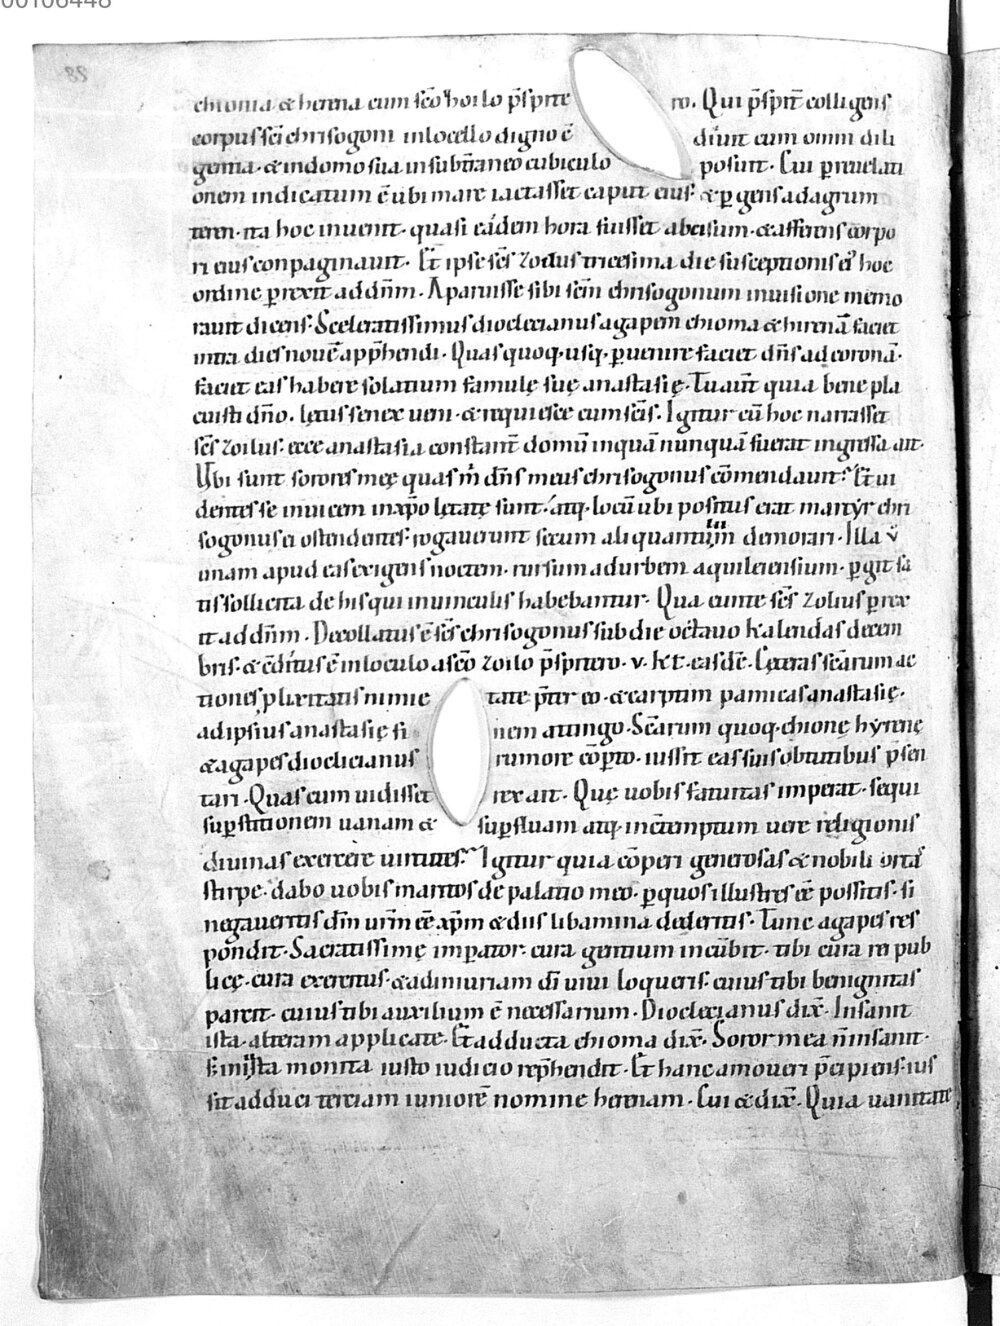 00106448
88
chionia & herena cum sc̄o hoilo p̄sp̄ite ro. Qui p̄sp̄it̄ colligens
corpus sc̄i chrisogoni in locello digno c̄ diunt cum omni dili
gentia · & in domo sua in subt̄raneo cubiculo posuit · Cui p̲ reuelati
onem indicatum ē ubi mare iactasset caput eius · & p̲gens ad agrum
teren · ita hoc inuenit · quasi eadem hora fuisset abcisum · & afferens corpo
ri eius conpaginauit · Et ipse sc̄s zoilus tricesima die susceptionis ei᾽ hoc
ordine p̲rexit ad dn̄m · Aparuisse sibi sc̄m chrisogonum in uisione memo
rauit dicens · Sceleratissimus dioclecianus agapem chionia & hirenā faciet
intra dies nouē app̄hendi · Quas quoq · usq · p̲uenire faciet dn̄s ad coronā ·
faciet eas habere solatium famulę suę anastasię · Tu aut̄ quia bene pla
cuisti dn̄o · lętus senex ueni · & requiesce cum sc̄is · Igitur cū hoc narrasset
sc̄s zoilus · ecce anastasia constant̄ domū in quā nunquā fuerat ingressa ait ·
Ubi sunt sorores meę quas m̄ dn̄s meus chrisogonus cōmendauit · Et ui
dentes se inuicem in xp̄o lętatę sunt · atq · locū ubi positus erat martyr chri
sogonus ei ostendentes · rogauerunt secum aliquantum demorari · Illa v̄
unam apud eas exigens noctem · rursum ad urbem aquileiensium · p̲git sa
tis sollicita de his qui in uinculis habebantur · Qua eunte sc̄s zolius p̲rex
it ad dn̄m · Decollatus ē sc̄s chrisogonus sub die octauo kalendas decem
bris · & cōditus ē in loculo a sc̄o zoilo p̄sp̄itero · v · kł · easdē · Cęteras sc̄arum ac
tiones p̲lixitatis nimie tate p̄ter eo · & carptim p̲ amicas anastasię ·
ad ipsius anastasię fi nem attingo · Sc̄arum quoq · chionę hyrenę
& agapes dioclicianus rumore cōp̲to · iussit eas suis obtutibus p̄sen
tari · Quas cum uidisset rex ait · Quę uobis fatuitas imperat · sequi
sup̲stitionem uanam & sup̲fluam atq · in cōtemptum uere religionis
diuinas exercere uirtutes · Igitur quia cōperi generosas & nobili ortas
stirpe · dabo uobis maritos de palatio meo · p̲ quos illustres eē possitis · si
negaueritis dm̄ urm̄ eē xp̄m & diis libamina dederitis · Tunc agapes res
pondit · Sacratissimę imp̲ator · cura gentium incūbit · tibi cura rei pub
licę · cura exercitus · & ad iniuriam dī uiui loqueris · cuius tibi benignitas
parcit · cuius tibi auxilium ē necessarium · Dioclecianus dix̄ · Insanit
ista · alteram applicate · Et adducta chionia dix̄ · Soror mea n̄ insanit ·
s; iniusta monita iusto iudicio rep̄hendit · Et hanc amoueri p̄cipiens · ius
sit adduci terciam iuniorē nomine hereniam · Cui & dix̄ · Quia uanitate